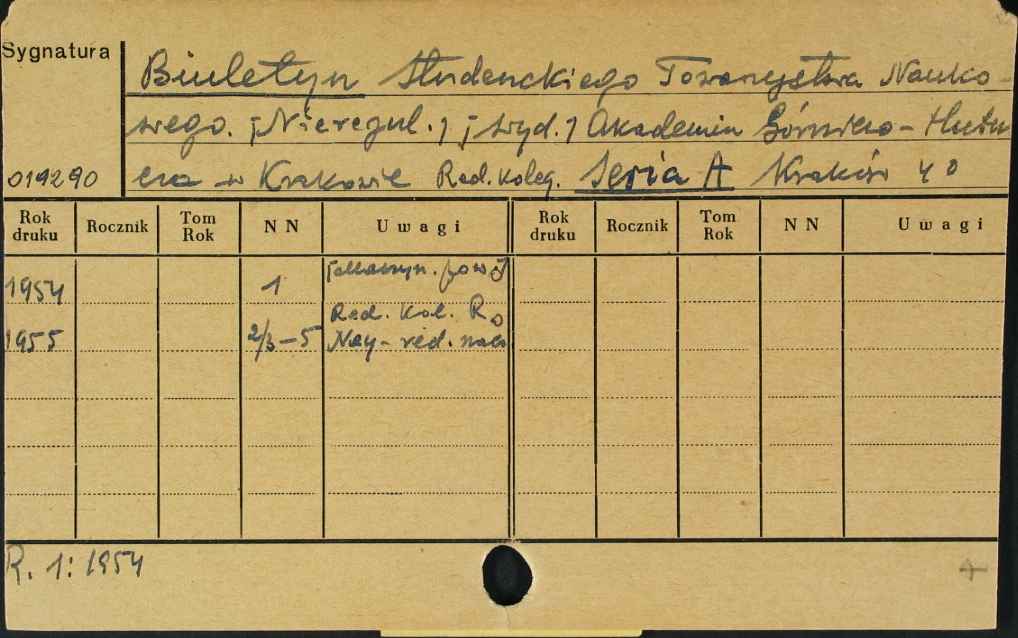 Sygnatura
Biuletyn Studenckiego Towarzystwa Nauko-
wego. [Nieregul.] [wyd.] Akademia Górniczo-Hutni
cza w Krakowie Red. koleg. Seria A Kraków 4°
019290
Rok druku Rocznik Tom Rok NN Uwagi Rok druku Rocznik Tom Rok NN Uwagi
1954 1
Red. Kol. R.
1955 2/3-5 Ney - red. nacz
R. 1: 1954